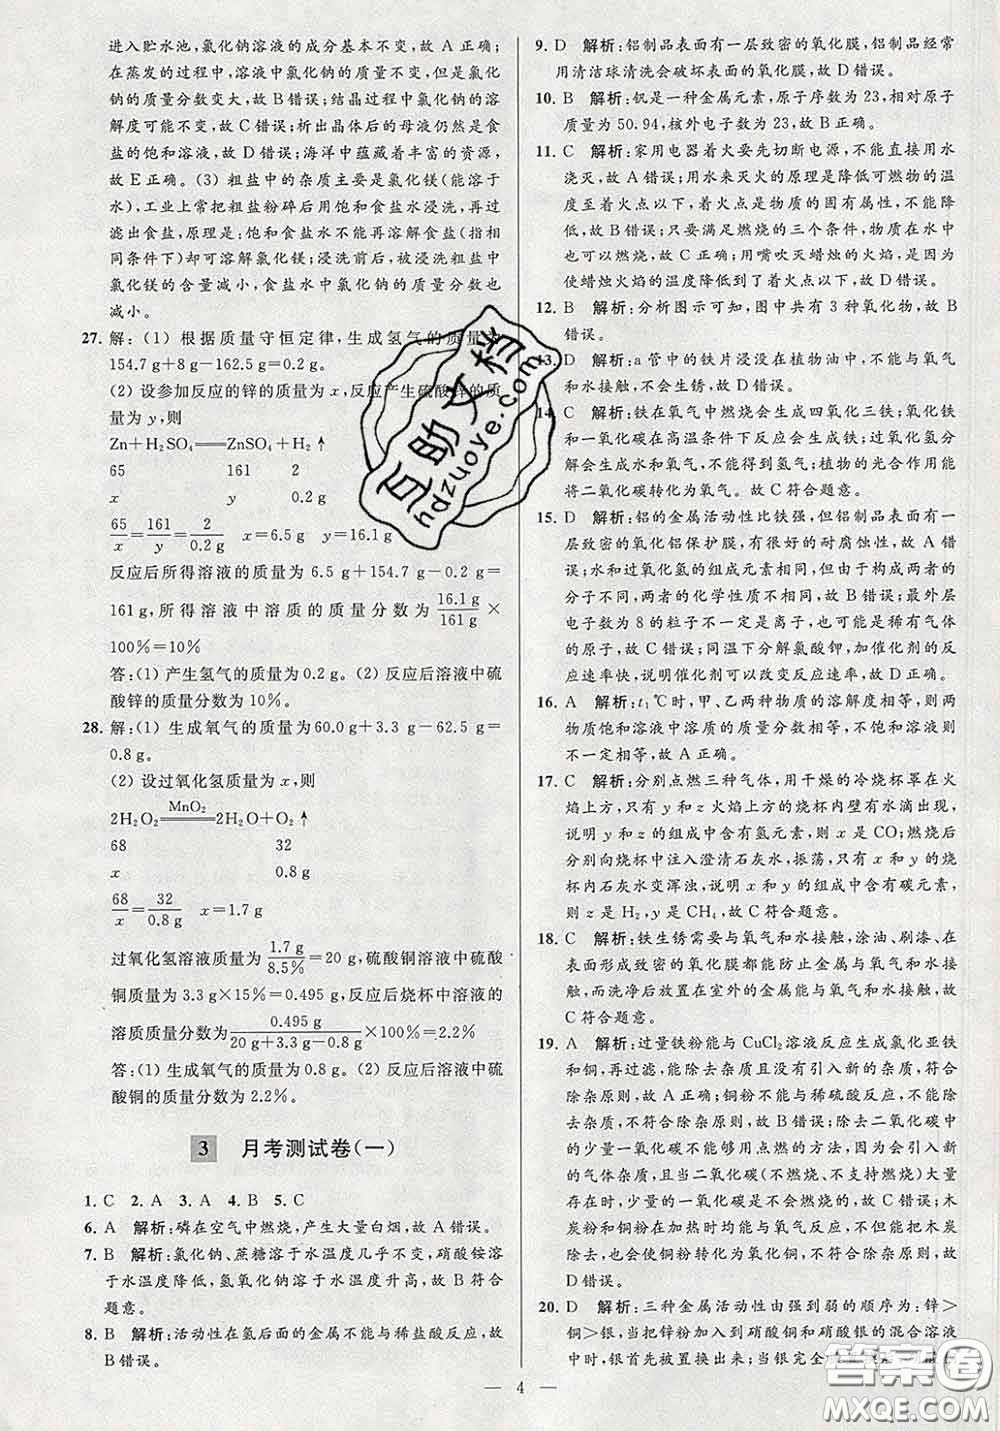 进入贮水池,氯化钠溶液的成分基本不变,故 A 正确;
在蒸发的过程中,溶液中氯化钠的质量不变,但是氯化
钠的质量分数变大,故 B 错误;结晶过程中氯化钠的溶
解度可能不变,故 C 错误;析出晶体后的母液仍然是食
盐的饱和溶液,故 D 错误;海洋中蕴藏着丰富的资源,
故 E 正确。(3) 粗盐中的杂质主要是氯化镁(能溶于
水),工业上常把粗盐粉碎后用饱和食盐水浸洗,再过
滤出食盐,原理是:饱和食盐水不能再溶解食盐(指相
同条件下)却可溶解氯化镁;浸洗前后,被浸洗粗盐中
氯化镁的含量减小,食盐水中氯化钠的质量分数也
减小。
27. 解:(1) 根据质量守恒定律,生成氢气的质量为
154.7 g+8 g-162.5 g=0.2 g。
(2) 设参加反应的锌的质量为 x,反应产生硫酸锌的质
量为 y,则
Zn+H₂SO₄═══ZnSO₄+H₂↑
65 161 2
x y 0.2 g
65/x=161/y=2/0.2 g x=6.5 g y=16.1 g
反应后所得溶液的质量为 6.5 g+154.7 g-0.2 g=
161 g,所得溶液中溶质的质量分数为16.1 g/161 g×
100%=10%
答:(1) 产生氢气的质量为 0.2 g。(2) 反应后溶液中硫
酸锌的质量分数为 10%。
28. 解:(1) 生成氧气的质量为 60.0 g+3.3 g-62.5 g=
0.8 g。
(2) 设过氧化氢质量为 x,则
MnO₂
2H₂O₂═══2H₂O+O₂↑
68 32
x 0.8 g
68/x=32/0.8 g x=1.7 g
过氧化氢溶液质量为1.7 g/8.5%=20 g,硫酸铜溶液中硫酸
铜质量为 3.3 g×15%=0.495 g,反应后烧杯中溶液的
溶质质量分数为0.495 g/20 g+3.3 g-0.8 g×100%=2.2%
答:(1) 生成氧气的质量为 0.8 g。(2) 反应后溶液中硫
酸铜的质量分数为 2.2%。
3 月考测试卷(一)
1. C 2. A 3. A 4. B 5. C
6. A 解析:磷在空气中燃烧,产生大量白烟,故 A 错误。
7. B 解析:氯化钠、蔗糖溶于水温度几乎不变,硝酸铵溶
于水温度降低,氢氧化钠溶于水温度升高,故 B 符合
题意。
8. B 解析:活动性在氢后面的金属不与稀盐酸反应,故
B 错误。
9. D 解析:铝制品表面有一层致密的氧化膜,铝制品经常
用清洁球清洗会破坏表面的氧化膜,故 D 错误。
10. B 解析:钒是一种金属元素,原子序数为 23,相对原子
质量为 50.94,核外电子数为 23,故 B 正确。
11. C 解析:家用电器着火要先切断电源,不能直接用水
浇灭,故 A 错误;用水来灭火的原理是降低可燃物的温
度至着火点以下,着火点是物质的固有属性,不能降
低,故 B 错误;只要满足燃烧的三个条件,物质在水中
也可以燃烧,故 C 正确;用嘴吹灭蜡烛的火焰,是因为
使蜡烛火焰的温度降低到了着火点以下,故 D 错误。
12. B 解析:分析图示可知,图中共有 3 种氧化物,故 B
错误。
13. D 解析:a 管中的铁片浸没在植物油中,不能与氧气
和水接触,不会生锈,故 D 错误。
14. C 解析:铁在氧气中燃烧会生成四氧化三铁;氧化铁
和一氧化碳在高温条件下反应会生成铁;过氧化氢分
解会生成水和氧气,不能得到氢气;植物的光合作用能
将二氧化碳转化为氧气。故 C 符合题意。
15. D 解析:铝的金属活动性比铁强,但铝制品表面有一
层致密的氧化铝保护膜,有很好的耐腐蚀性,故 A 错
误;水和过氧化氢的组成元素相同,但由于构成两者的
分子不同,两者的化学性质不相同,故 B 错误;最外层
电子数为 8 的粒子不一定是离子,也可能是稀有气体
的原子,故 C 错误;同温下分解氯酸钾,加催化剂的反
应速率快,说明催化剂可以改变反应速率,故 D 正确。
16. A 解析:t₁℃时,甲、乙两种物质的溶解度相等,则两
种物质饱和溶液中溶质的质量分数相等,不饱和溶液则
不一定相等,故 A 正确。
17. C 解析:分别点燃三种气体,用干燥的冷烧杯罩在火
焰上方,只有 y 和 z 火焰上方的烧杯内壁有水滴出现,
说明 y 和 z 的组成中含有氢元素,则 x 是 CO;燃烧后
分别向烧杯中注入澄清石灰水,振荡,只有 x 和 y 的烧
杯内石灰水变浑浊,说明 x 和 y 的组成中含有碳元素,
则 z 是 H₂,y 是 CH₄,故 C 符合题意。
18. C 解析:铁生锈需要与氧气和水接触,涂油、刷漆、在
表面形成致密的氧化膜都能防止金属与氧气和水接
触,而洗净后放置在室外的金属能与氧气和水接触,故
C 符合题意。
19. A 解析:过量铁粉能与 CuCl₂ 溶液反应生成氯化亚铁
和铜,再过滤,能除去杂质且没有引入新的杂质,符合
除杂原则,故 A 正确;铜粉不能与稀硫酸反应,不能除
去杂质,不符合除杂原则,故 B 错误;除去二氧化碳中
的少量一氧化碳不能点燃的方法,因为会引入新
的气体杂质,且当二氧化碳(不燃烧、不支持燃烧)大量
存在时,少量的一氧化碳是不会燃烧的,故 C 错误;木
炭粉和铜粉在加热时均能与氧气反应,不但能把木炭
除去,也会把铜粉转化为氧化铜,不符合除杂原则,故
D 错误。
20. D 解析:三种金属活动性由强到弱的顺序为:锌>
铜>银,当把锌粉加入到硝酸铜和硝酸银的混合溶液
中时,银首先被置换出来;当银完全
— 4 —
互助文档
ydzuoye.com
答案圈
MXQE.COM